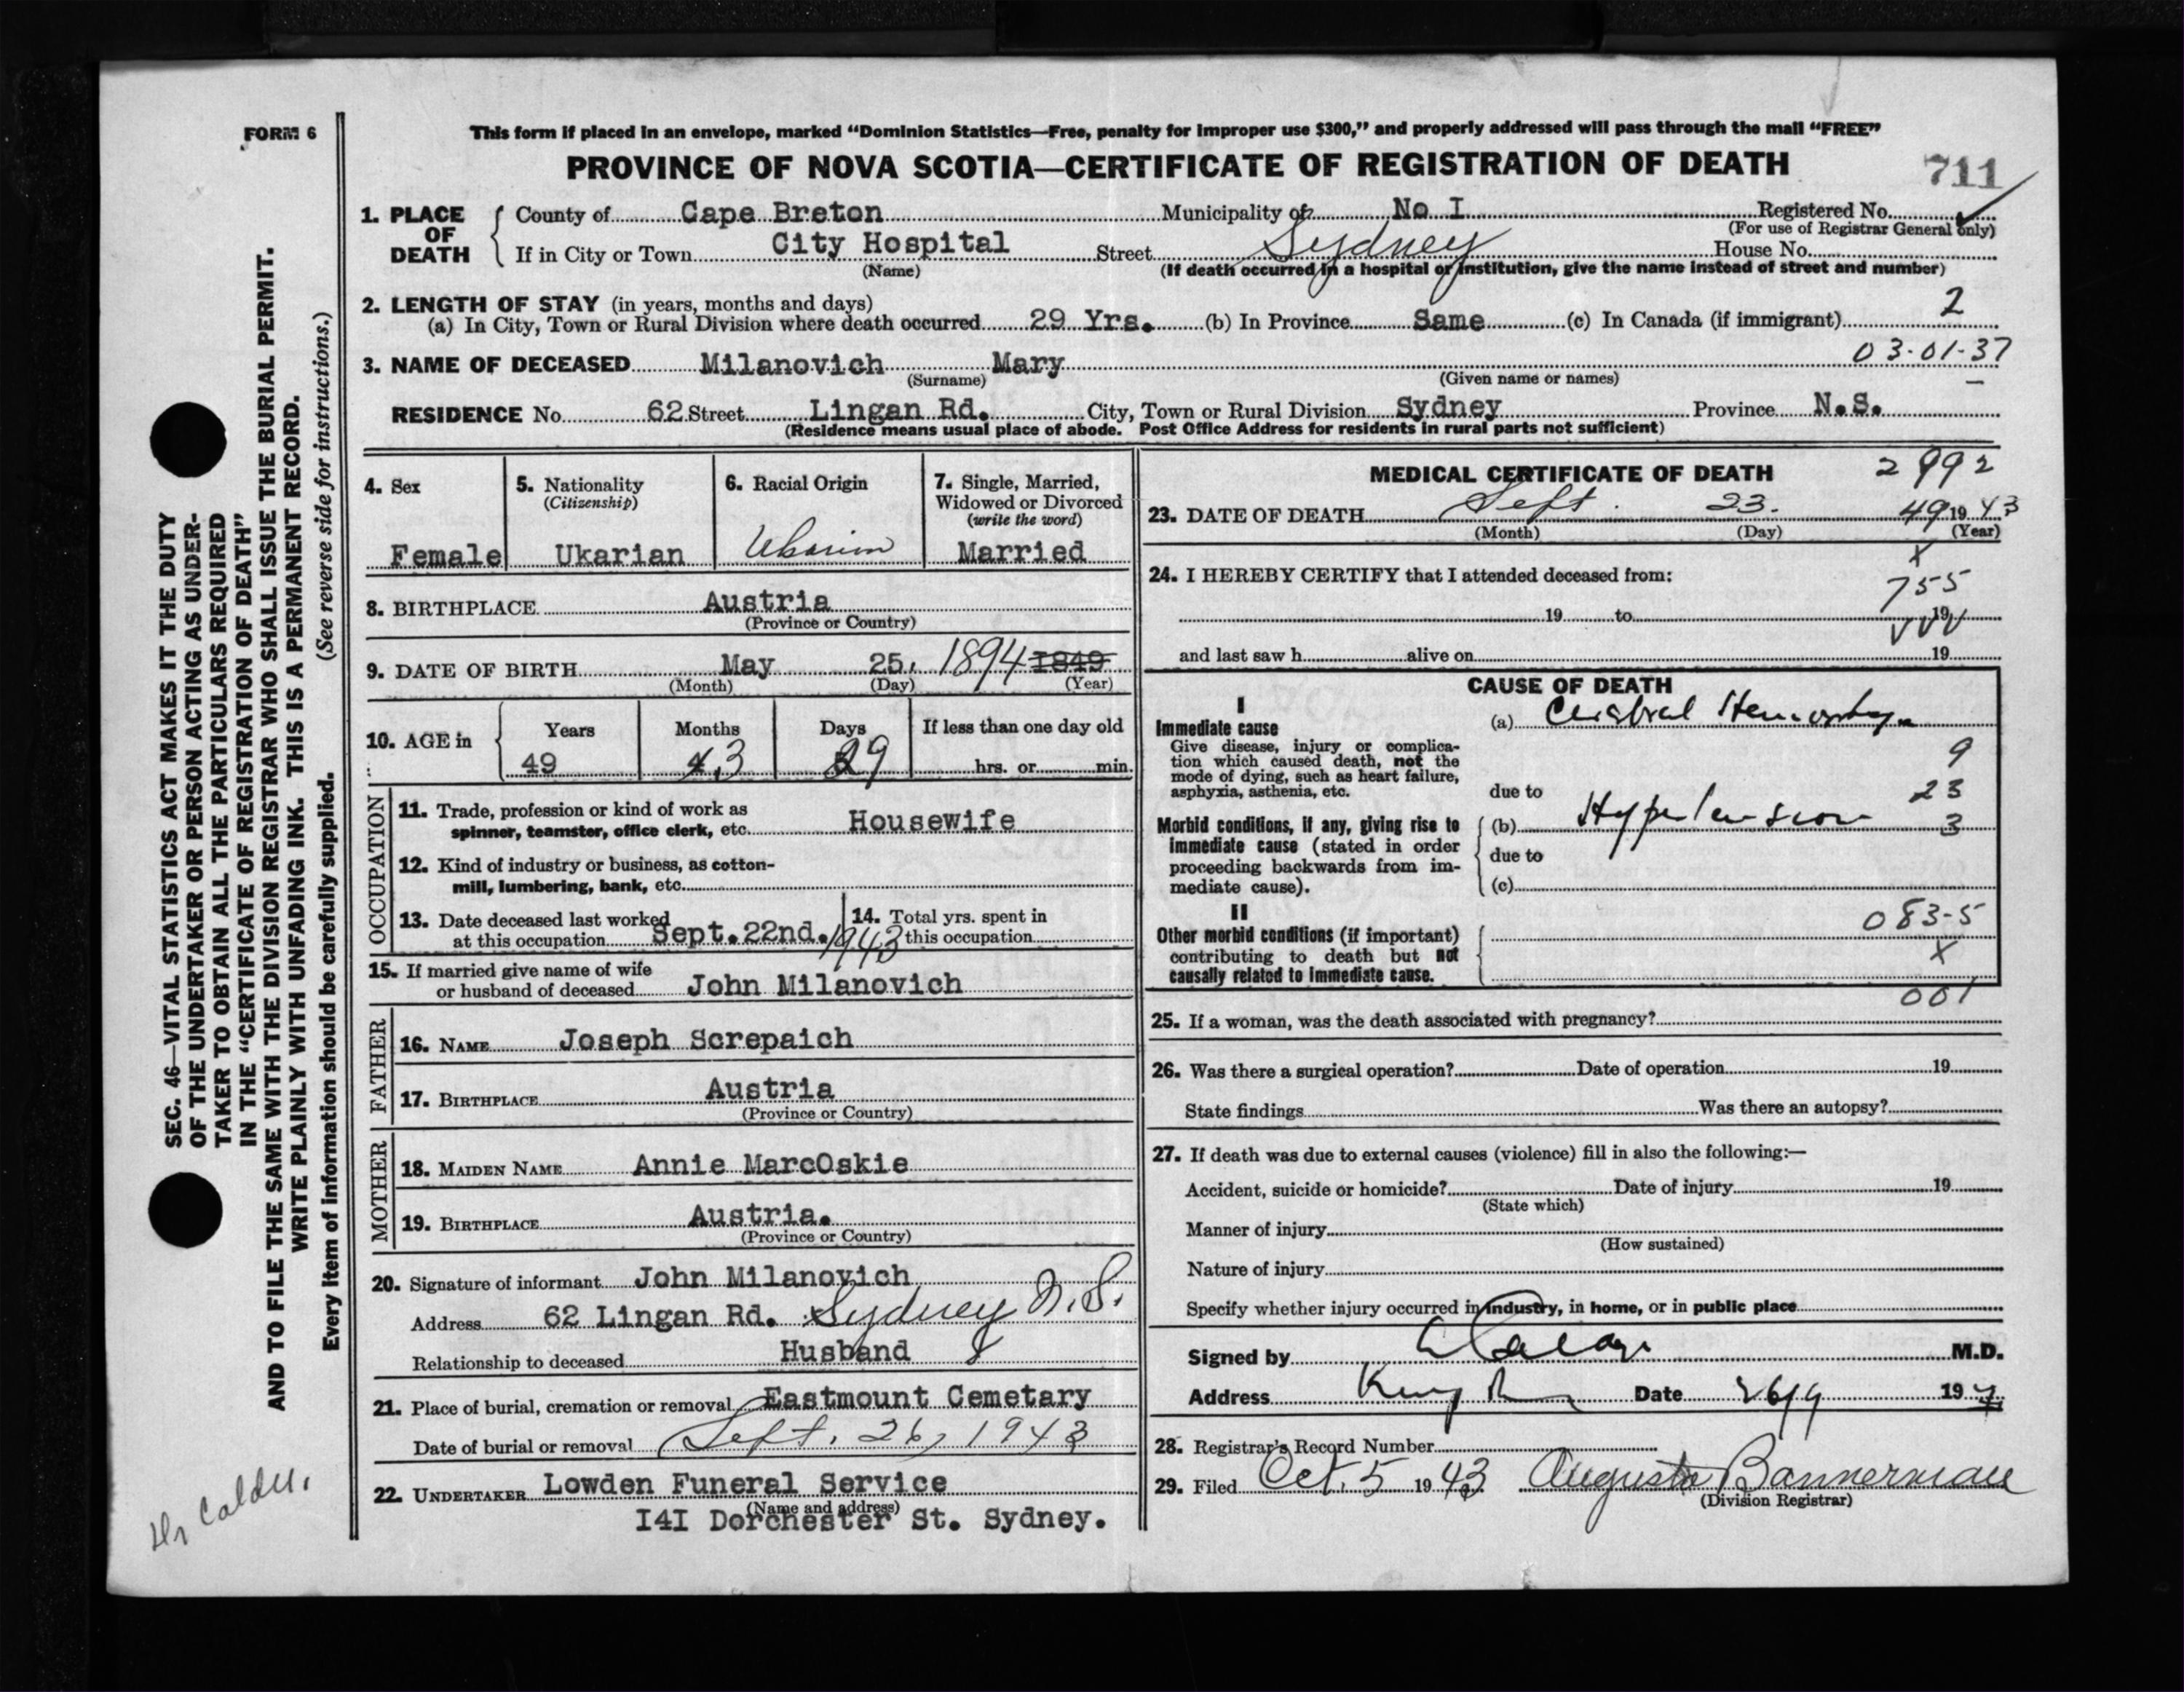 FORM 6
This form if placed in an envelope, marked “Dominion Statistics—Free, penalty for improper use $300,” and properly addressed will pass through the mail “FREE”
PROVINCE OF NOVA SCOTIA—CERTIFICATE OF REGISTRATION OF DEATH
711
1. PLACE OF DEATH
County of Cape Breton Municipality of No I Registered No.
(For use of Registrar General only)
If in City or Town City Hospital Street Sydney House No.
(Name) (If death occurred in a hospital or institution, give the name instead of street and number)
2. LENGTH OF STAY (in years, months and days)
(a) In City, Town or Rural Division where death occurred 29 Yrs. (b) In Province Same (c) In Canada (if immigrant) 2
03-01-37
3. NAME OF DECEASED Milanovich Mary
(Surname) (Given name or names)
RESIDENCE No. 62 Street Lingan Rd. City, Town or Rural Division Sydney Province N.S.
(Residence means usual place of abode. Post Office Address for residents in rural parts not sufficient)
4. Sex
Female
5. Nationality
(Citizenship)
Ukarian
6. Racial Origin
7. Single, Married,
Widowed or Divorced
(write the word)
Married
8. BIRTHPLACE Austria
(Province or Country)
9. DATE OF BIRTH May 25, 1894 1849
(Month) (Day) (Year)
10. AGE in
Years Months Days If less than one day old
49 3 29 hrs. or min.
OCCUPATION
11. Trade, profession or kind of work as
spinner, teamster, office clerk, etc. Housewife
12. Kind of industry or business, as cotton-
mill, lumbering, bank, etc.
13. Date deceased last worked
at this occupation Sept. 22nd. 1943
14. Total yrs. spent in
this occupation
15. If married give name of wife
or husband of deceased John Milanovich
FATHER
16. NAME Joseph Screpaich
17. BIRTHPLACE Austria
(Province or Country)
MOTHER
18. MAIDEN NAME Annie MarcOskie
19. BIRTHPLACE Austria.
(Province or Country)
20. Signature of informant John Milanovich
Address 62 Lingan Rd. Sydney N.S.
Relationship to deceased Husband
21. Place of burial, cremation or removal Eastmount Cemetary
Date of burial or removal Sept. 26, 1943
22. UNDERTAKER Lowden Funeral Service
(Name and address)
I4I Dorchester St. Sydney.
MEDICAL CERTIFICATE OF DEATH
2992
23. DATE OF DEATH Sept. 23. 49 1943
(Month) (Day) (Year)
X
24. I HEREBY CERTIFY that I attended deceased from:
755
19 to 19
and last saw h alive on 19
CAUSE OF DEATH
I
Immediate cause
Give disease, injury or complica-
tion which caused death, not the
mode of dying, such as heart failure,
asphyxia, asthenia, etc.
(a) Cerebral Hemorrhage
9
due to
23
Morbid conditions, if any, giving rise to
immediate cause (stated in order
proceeding backwards from im-
mediate cause).
(b) Hypertension
3
due to
(c)
II
Other morbid conditions (if important)
contributing to death but not
causally related to immediate cause.
083-5
X
001
25. If a woman, was the death associated with pregnancy?
26. Was there a surgical operation? Date of operation 19
State findings Was there an autopsy?
27. If death was due to external causes (violence) fill in also the following:—
Accident, suicide or homicide? Date of injury 19
(State which)
Manner of injury
(How sustained)
Nature of injury
Specify whether injury occurred in industry, in home, or in public place
Signed by M.D.
Address Date 26/9 19
28. Registrar's Record Number
29. Filed Oct. 5 1943 Augusta Bannerman
(Division Registrar)
SEC. 46—VITAL STATISTICS ACT MAKES IT THE DUTY
OF THE UNDERTAKER OR PERSON ACTING AS UNDER-
TAKER TO OBTAIN ALL THE PARTICULARS REQUIRED
IN THE “CERTIFICATE OF REGISTRATION OF DEATH”
AND TO FILE THE SAME WITH THE DIVISION REGISTRAR WHO SHALL ISSUE THE BURIAL PERMIT.
WRITE PLAINLY WITH UNFADING INK. THIS IS A PERMANENT RECORD.
Every item of information should be carefully supplied. (See reverse side for instructions.)
Dr Calder.